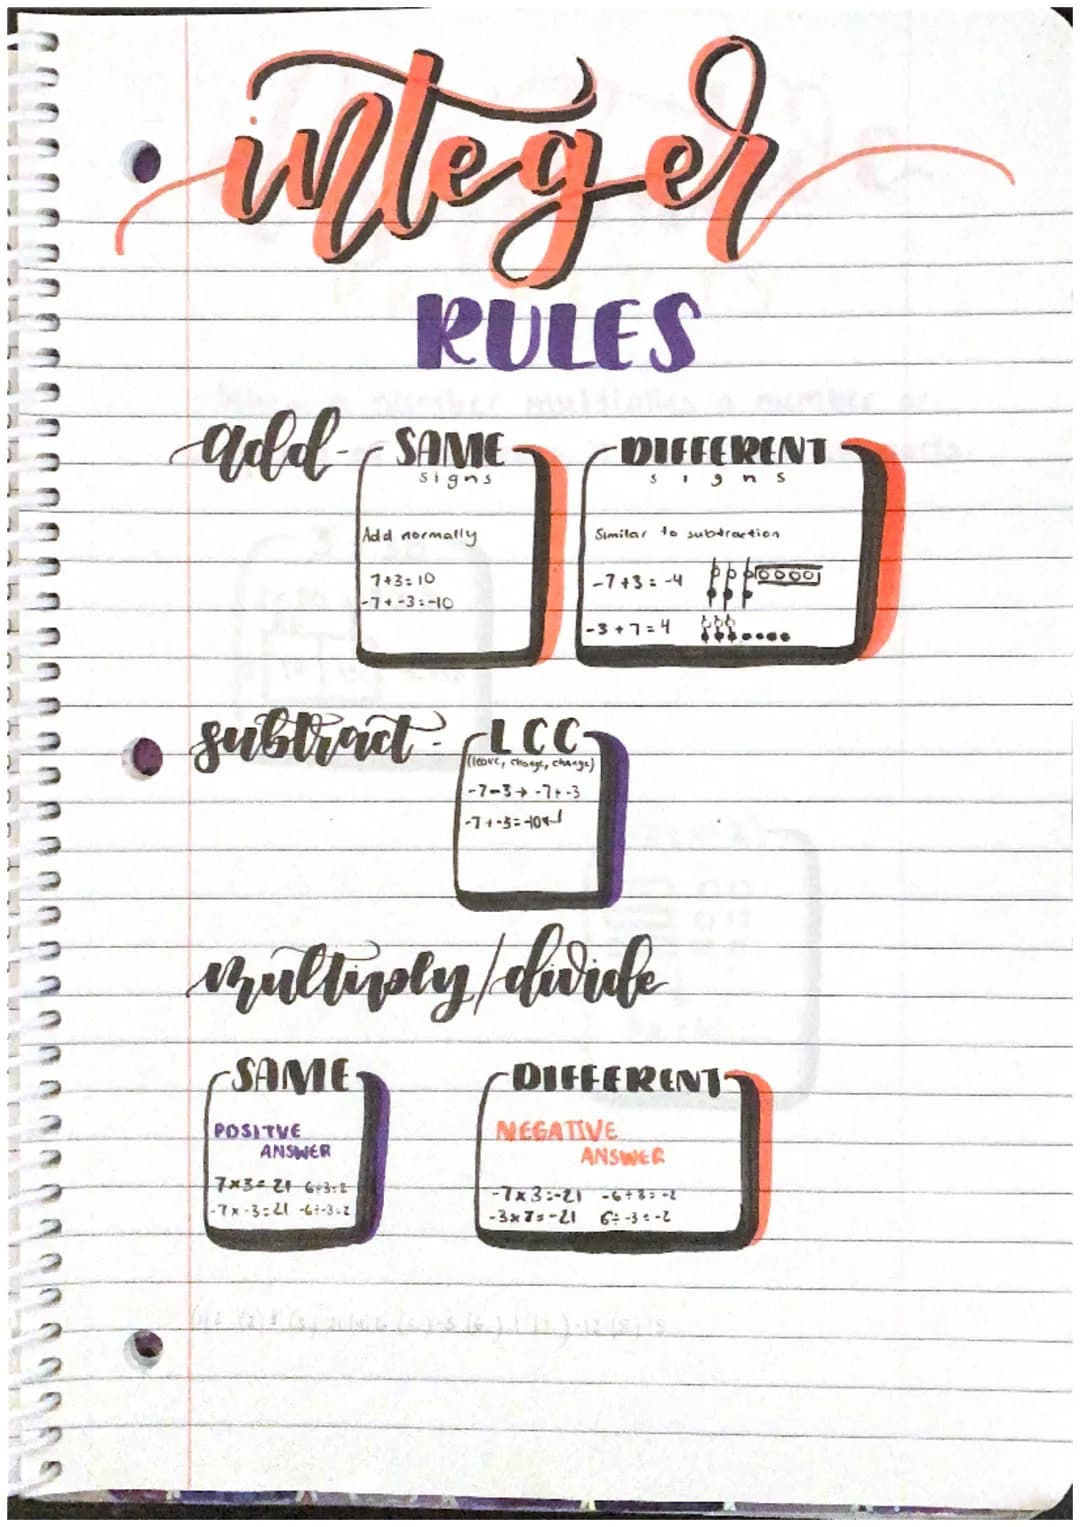 integer
RULES
add- SAME
signs
Add normally
7+3=10
-7+-3=-10
DIFFERENT
signs
Similar to subtraction
-7+3=-4
-3+7=4
subtract- LCC
(leave, change, change)
-7-3→ -7+-3
multiply/divide
SAME
POSITVE
ANSWER
7×3=21 6÷3=2
-7×-3=21 -6÷-3=2
DIFFERENT
NEGATIVE
ANSWER
-7×3=-21 -6÷3=-2
-3×7=-21 6÷-3=-2